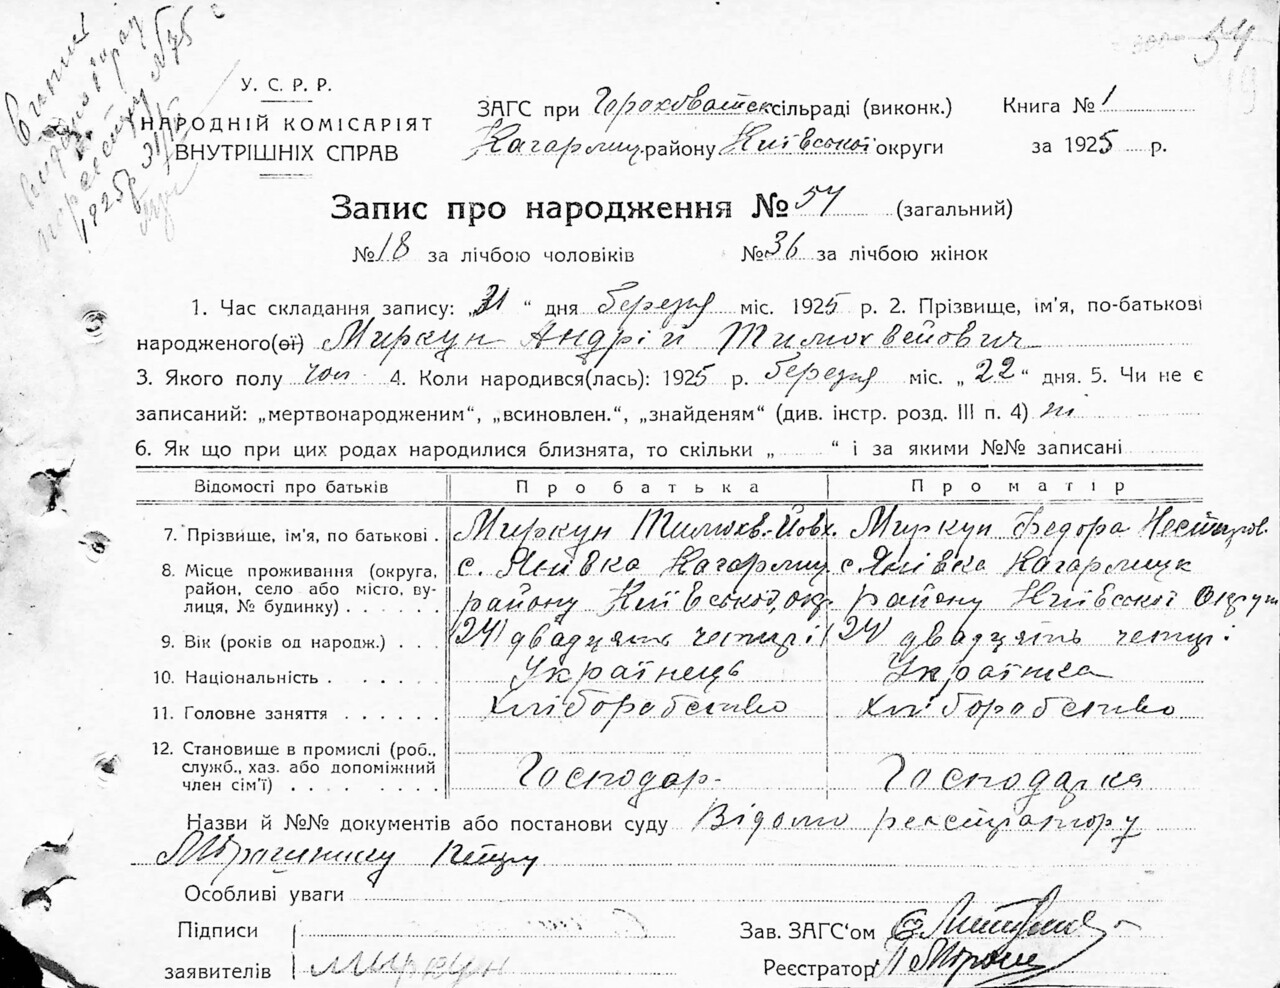 Витяг
видано
реєстру № 75
1925 р. 31/V
54
У. С. Р. Р.
НАРОДНІЙ КОМІСАРІЯТ
ВНУТРІШНІХ СПРАВ
ЗАГС при Гороховатск сільраді (виконк.)
Кагарлиц. району Київської округи
Книга № 1
за 1925 р.
Запис про народження № 54 (загальний)
№ 18 за лічбою чоловіків № 36 за лічбою жінок
1. Час складання запису: „31“ дня березня міс. 1925 р. 2. Прізвище, ім'я, по-батькові
народженого(ої) Миркун Андрій Тимохвейович
3. Якого полу чол. 4. Коли народився(лась): 1925 р. березня міс. „22“ дня. 5. Чи не є
записаний: „мертвонародженим“, „всиновлен.“, „знайденям“ (див. інстр. розд. III п. 4) ні
6. Як що при цих родах народилися близнята, то скільки „ “ і за якими №№ записані
Відомості про батьків Про батька Про матір
7. Прізвище, ім'я, по батькові . Миркун Тимохв. Йовх. Миркун Федора Нестиров.
8. Місце проживання (округа, район, село або місто, вулиця, № будинку) . . . . . с. Янівка Кагарлиц. району Київської окр. с. Янівка Кагарлицк району Київської Округи
9. Вік (років од народж.) . . . (24) двадцять чотирі (24) двадцять чотирі
10. Національність . . . . . . Українець Українка
11. Головне заняття . . . . . . Хліборобство Хліборобство
12. Становище в промислі (роб., служб., хаз. або допоміжний член сім'ї) . . . . . . . . . Господар Господарка
Назви й №№ документів або постанови суду Відомо реєстратору
Особливі уваги
Підписи
заявителів Миркун
Зав. ЗАГС'ом
Реєстратор